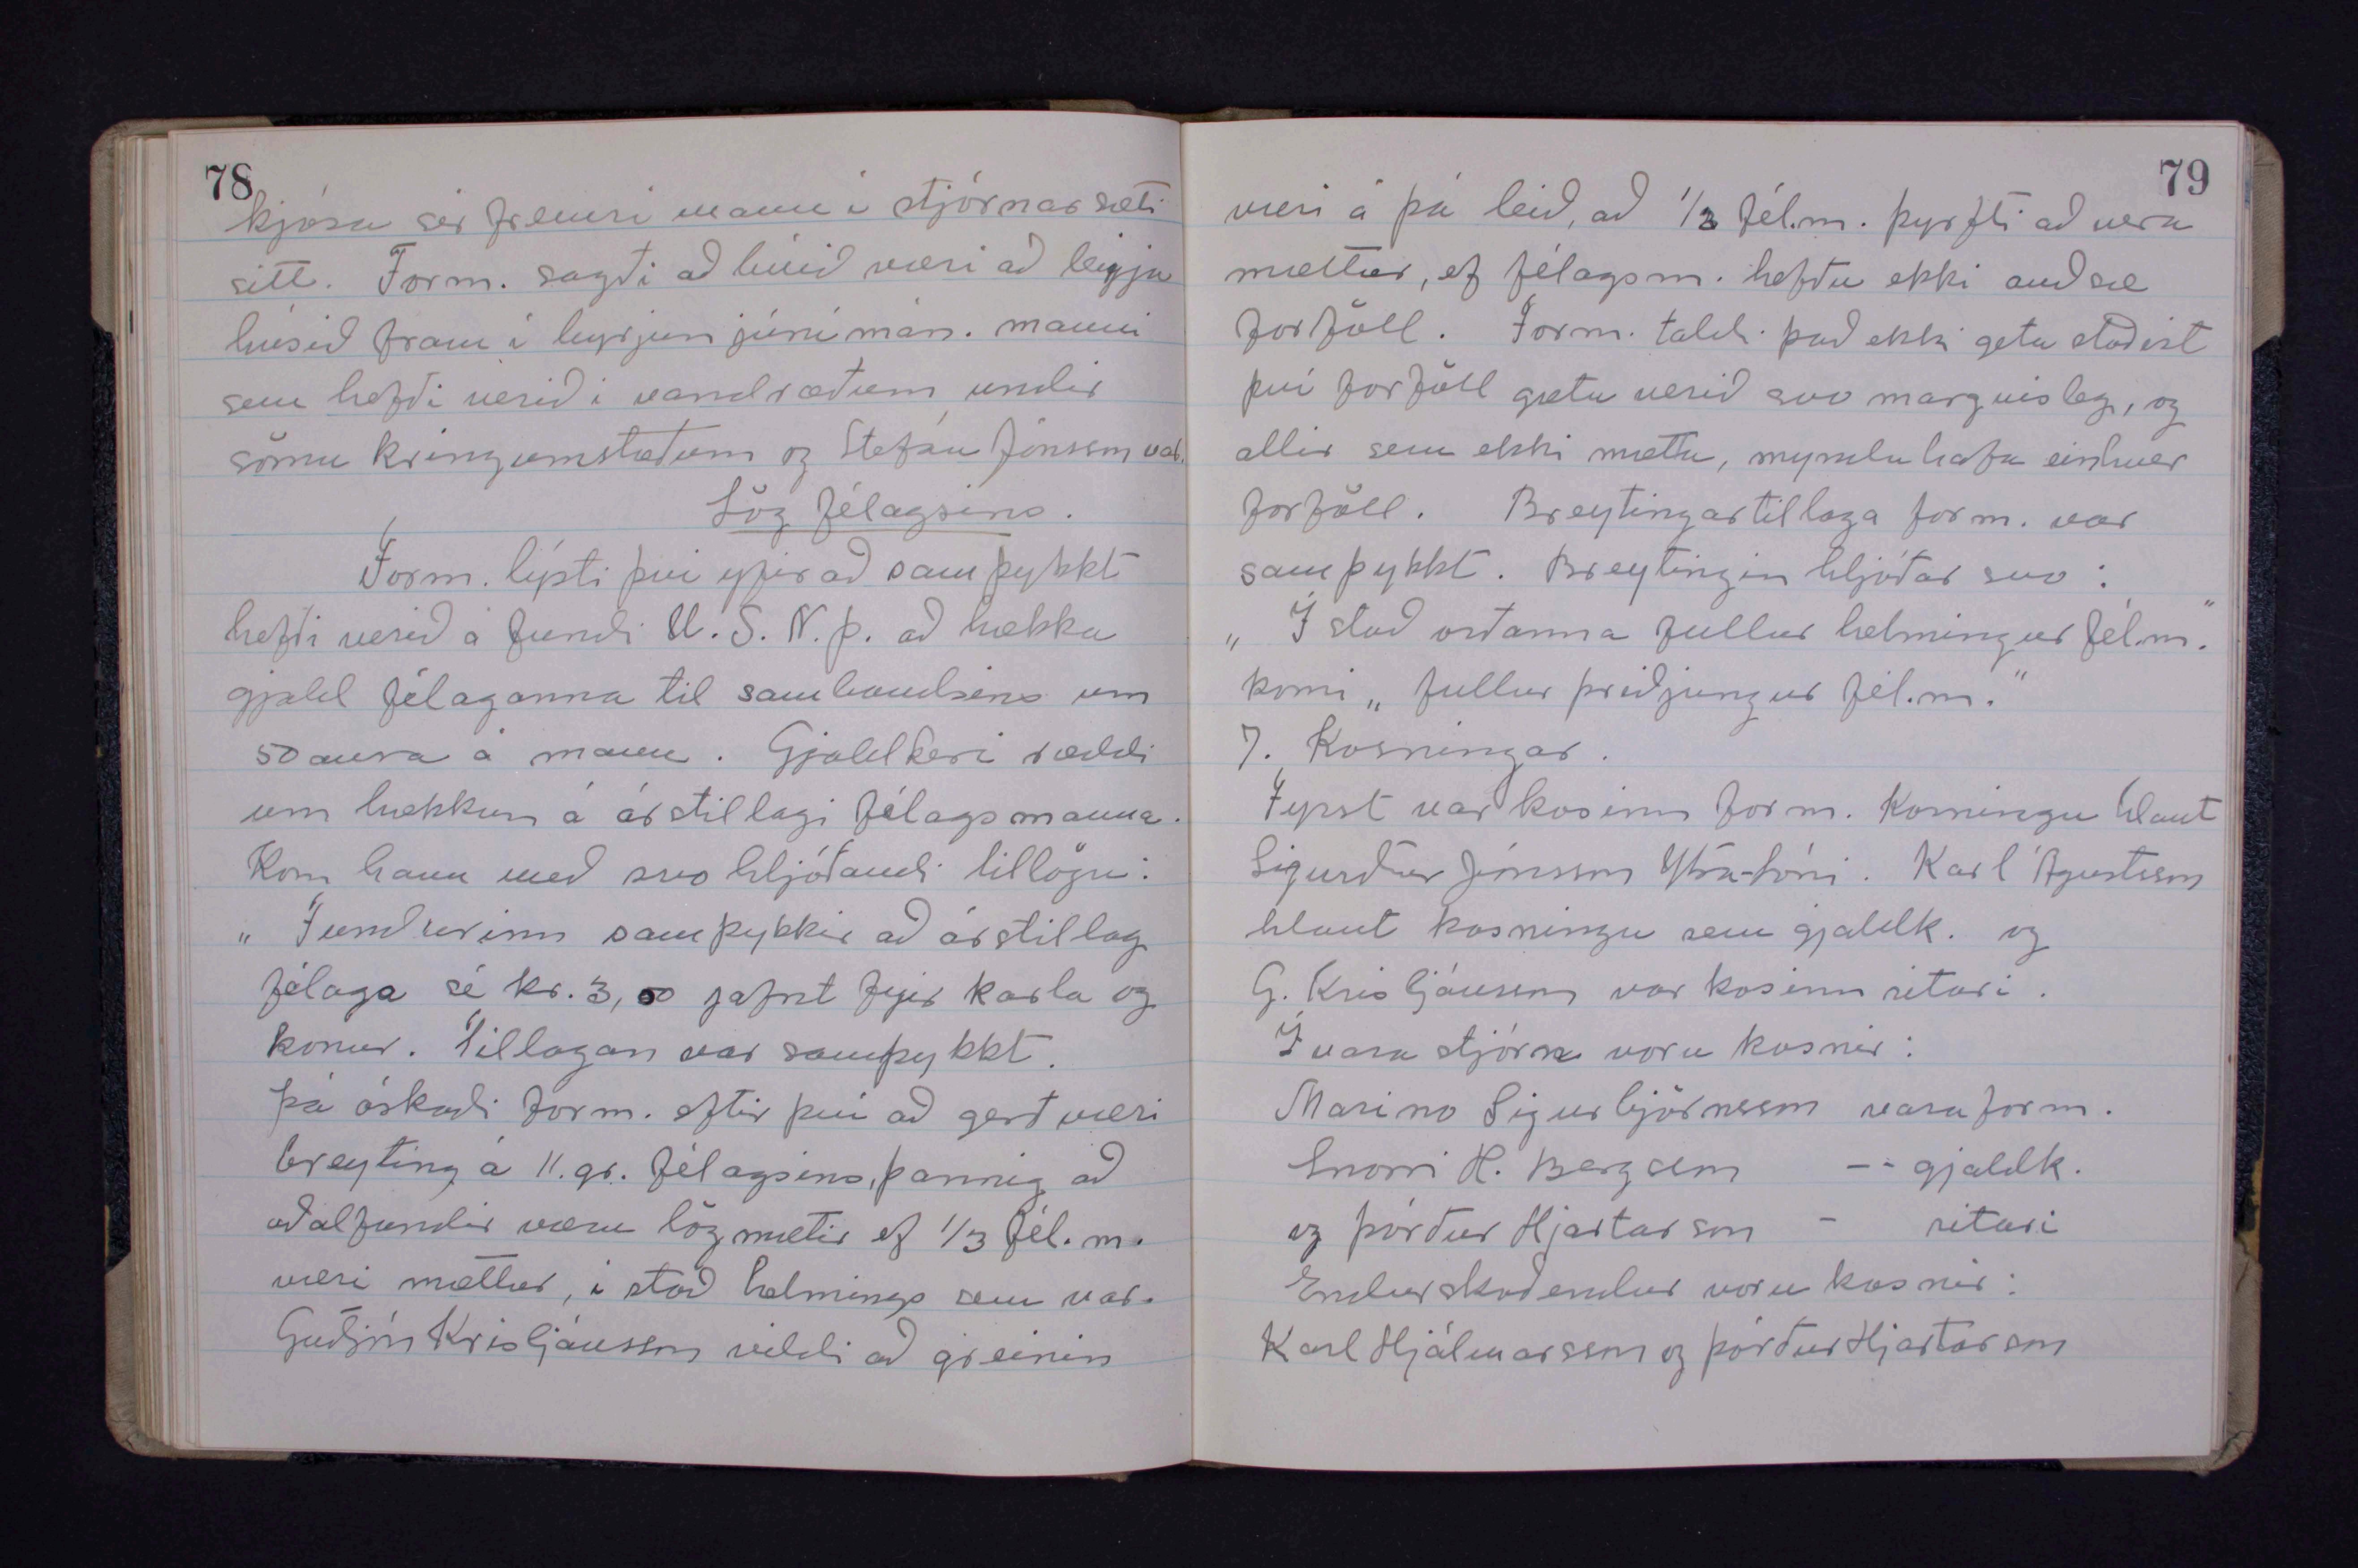 78
kjósa sér fremri mann í stjórnarsæti
sitt. Form. sagði að búið væri að leigja
húsið fram í byrjun júní mán. manni
sem hefði verið í vandræðum undir
sömu kringumstæðum og Stefán Jónsson var.
Lög félagsins.
Form. lýsti því yfir að samþykkt
hefði verið á fundi U.S.N.Þ. að hækka
gjald félaganna til sambandsins um
50 aura á mann. Gjaldkeri ræddi
um hækkun á árstillagi félagsmanna.
Kom hann með svo hljóðandi tillögu:
„Fundurinn samþykkir að árstillag
félaga sé kr. 3,00 jafnt fyrir karla og
konur. Tillagan var samþykkt.
Þá óskaði form. eftir því að gerð væri
breyting á 11. gr. félagsins, þannig að
aðalfundir væru lögmætir ef 1/3 fél.m.
væri mættur, í stað helmings sem var.
Guðjón Kristjánsson vildi að greinin
79
væri á þá leið, að 1/3 fél.m. þyrfti að vera
mættur, ef félagsm. hefðu ekki auðsæ
forföll. Form. taldi það ekki geta staðist
því forföll gætu verið svo margvísleg, og
allir sem ekki mættu, myndu hafa einhver
forföll. Breytingartillaga form. var
samþykkt. Breytingin hljóðar svo:
„Í stað orðanna fullur helmingur fél.m."
komi „fullur þriðjungur fél.m."
7. Kosningar.
Fyrst var kosinn form. Kosningu hlaut
Sigurður Jónsson Ytra-hóni. Karl Ágústsson
hlaut kosningu sem gjaldk. og
G. Kristjánsson var kosinn ritari.
Í vara stjórn voru kosnir:
Marino Sigurbjörnsson varaform.
Snorri H. Bergsson -- gjaldk.
og Þórður Hjartarson - ritari
Endurskoðendur voru kosnir:
Karl Hjálmarsson og Þórður Hjartarson